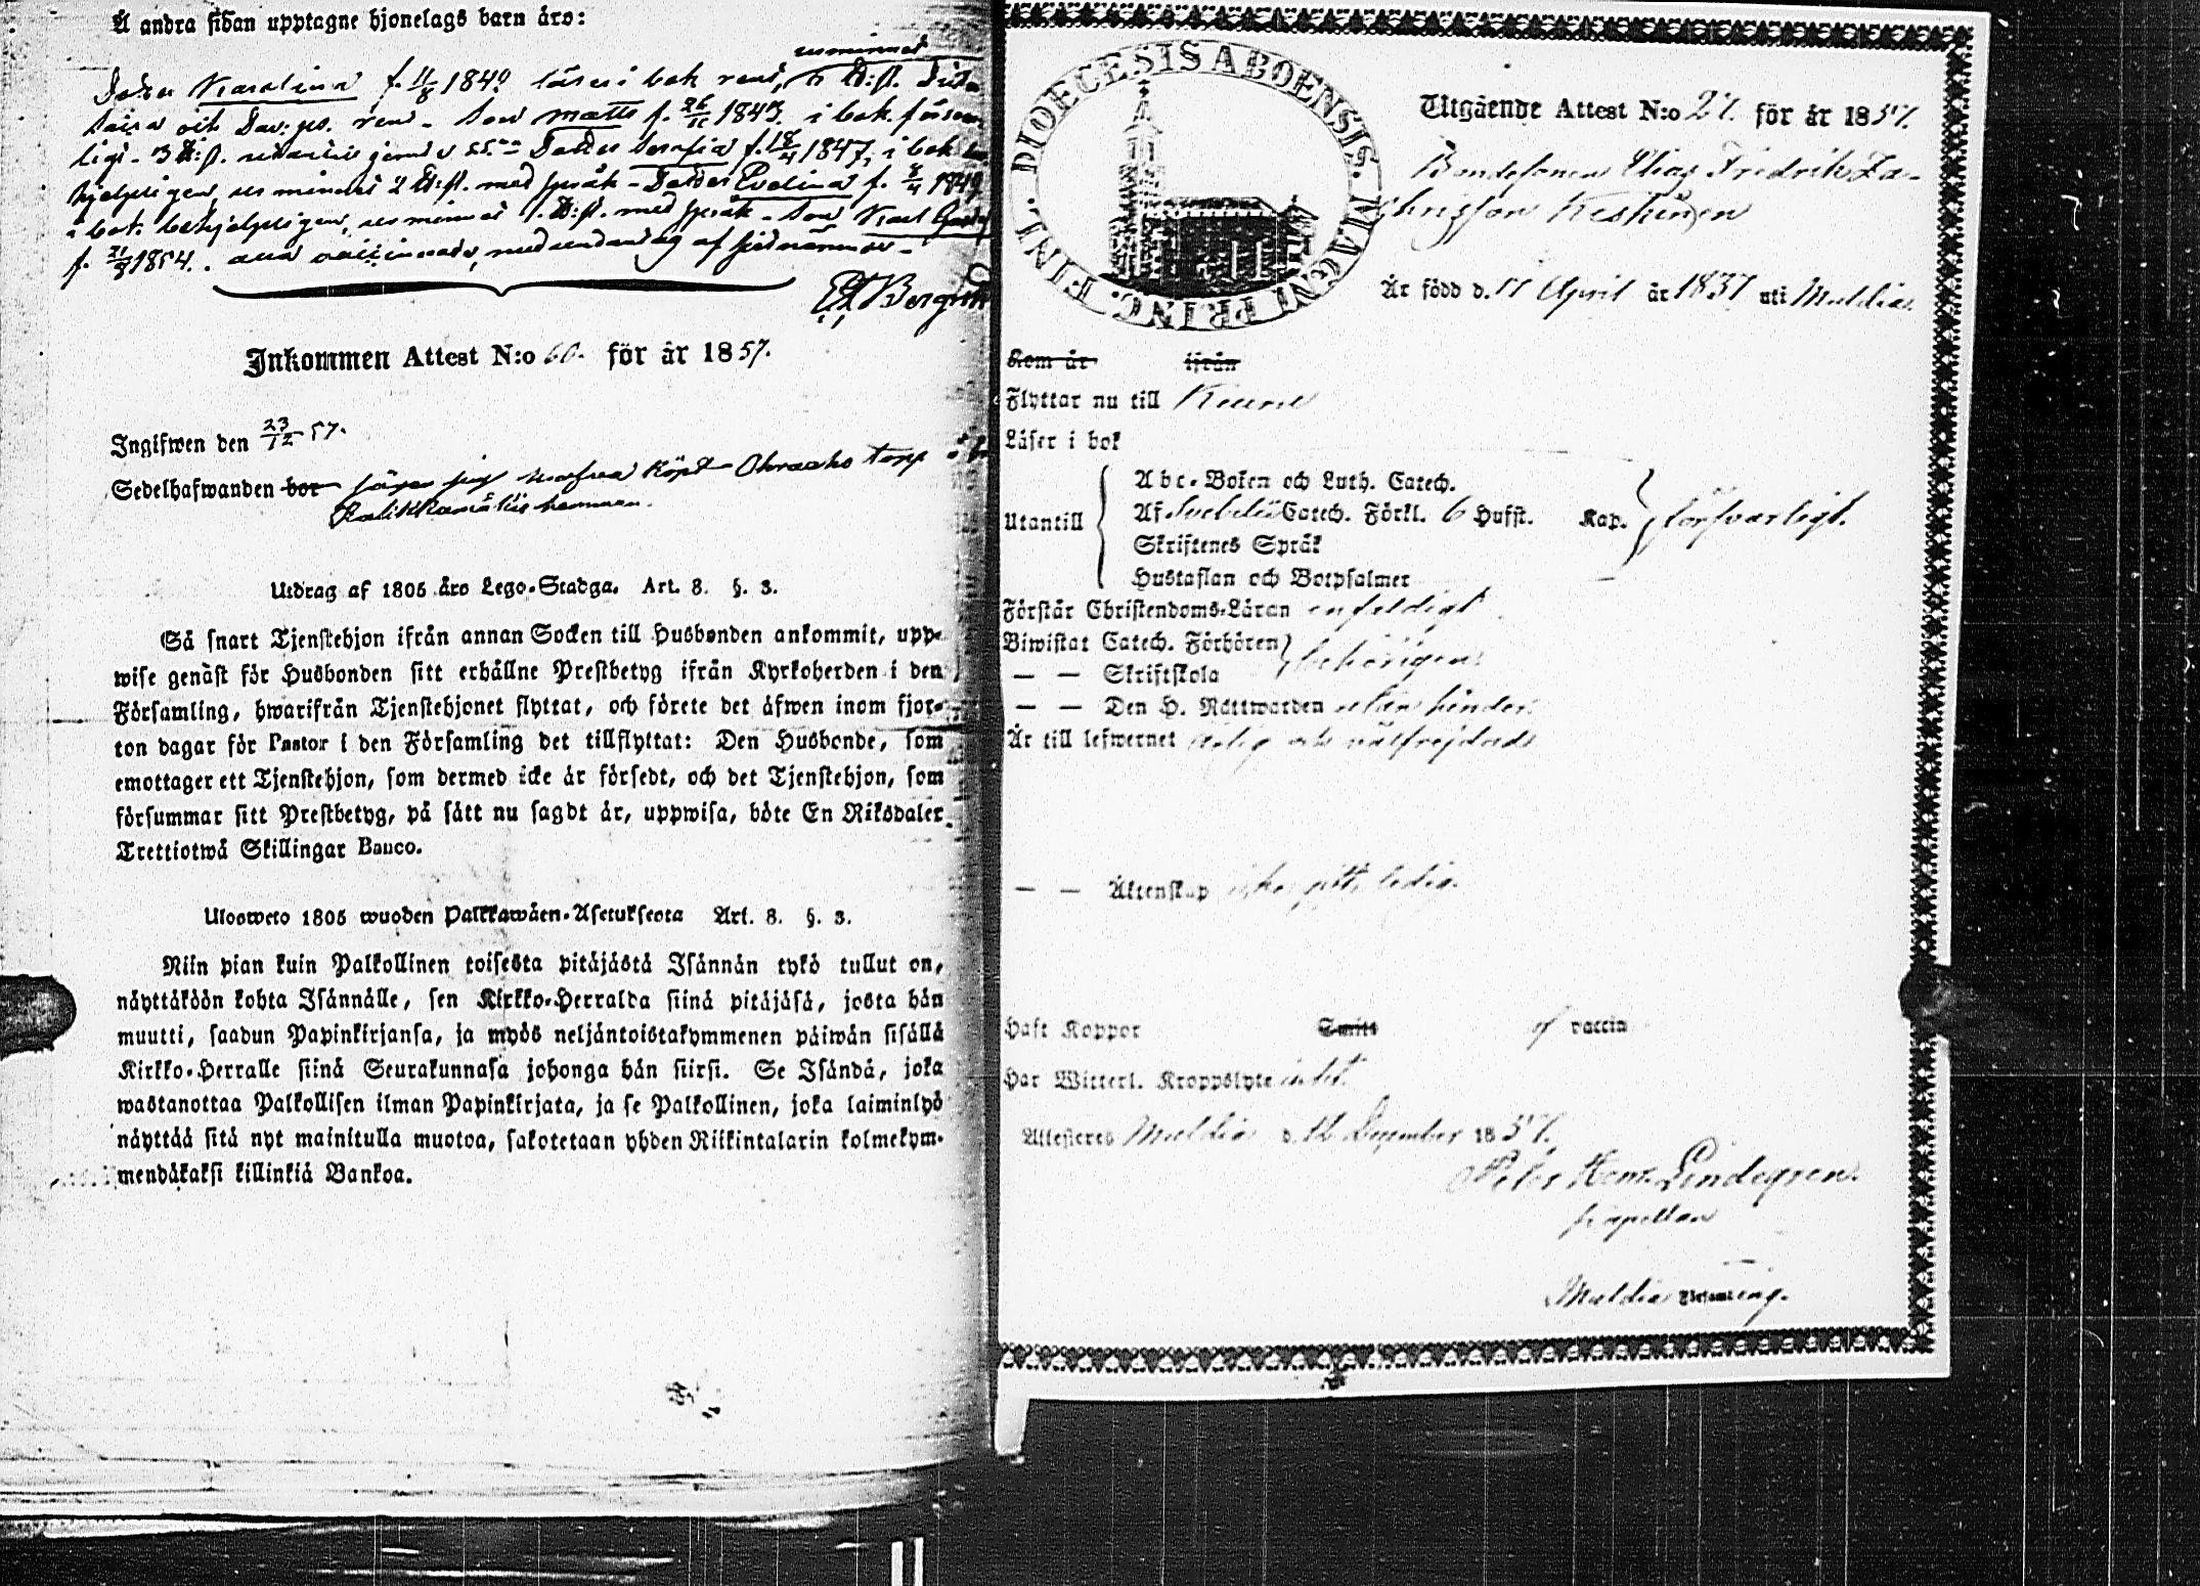 Å andra sidan upptagne hjonelags barn äro:
Dotter Karolina f. 11/8 1840 läser i bok rent,
son Matts f. 1843. i bok försvar-
ligt - 3 Dotter Serafia f. 18/4 1847, i bok
hjelpligen, utminnes 2 H:st. med språk - Dotter Evelina f. 1849
i bok behjelpligen, utminnes 1. H:st. med språk - Son Karl
f. 1854. alla vaccinerade, med undantag af
Inkommen Attest N:o 60. för år 1857.
Ingifwen den 23/12 57.
Sedelhafwanden bor säger sig hafva köpt torp
Utdrag af 1805 års Lego-Stadga. Art. 8. §. 3.
Så snart Tjenstehjon ifrån annan Socken till Husbonden ankommit, upp-
wise genast för Husbonden sitt erhållne Prestbetyg ifrån Kyrkoherden i den
Församling, hwarifrån Tjenstehjonet flyttat, och förete det äfwen inom fjor-
ton dagar för Pastor i den Församling det tillflyttat: Den Husbonde, som
emottager ett Tjenstehjon, som dermed icke är försedt, och det Tjenstehjon, som
försummar sitt Prestbetyg, på sätt nu sagdt är, uppwisa, böte En Riksdaler
Trettiotwå Skillingar Banco.
Ulosweto 1805 wuoden Palkkawäen-Asetuksesta Art. 8. §. 3.
Niin pian kuin Palkollinen toisesta pitäjästä Isännän tykö tullut on,
näyttäköön kohta Isännälle, sen Kirkko-Herralda siinä pitäjäsä, josta hän
muutti, saadun Papinkirjansa, ja myös neljäntoistakymmenen päiwän sisällä
Kirkko-Herralle siinä Seurakunnasa johonga hän siirsi. Se Isändä, joka
wastanottaa Palkollisen ilman Papinkirjata, ja se Palkollinen, joka laiminlyö
näyttää sitä nyt mainitulla muotoa, sakotetaan yhden Riikintalarin kolmekym-
mendäkaksi killinkiä Bankoa.
DIOECESIS ABOENSIS. MAGNI PRINC. FINL.
Utgående Attest N:o 27. för år 1857.
Bondesonen Elias Fredrik Za-
chrisson Keskinen
Är född d. 17 April år 1837 uti Muldia.
Kom år ifrån
Flyttar nu till Keuru
Läser i bok
Utantill
Abc-Boken och Luth. Catech.
Af Svebelii Catech. Förkl. 6 Hufst. Kap. försvarligt.
Skriftenes Språk
Hustaflan och Botpsalmer
Förstår Christendoms-Läran enfeldigt
Biwistat Catech. Förhören behörigen.
— — Skriftskola
— — Den H. Nattwarden utan hinder.
Är till lefwernet ärlig och välfrejdad
— — Äktenskap icke gift, ledig.
Haft Koppor Smitt af vaccin
Har Witterl. Kroppslyte intet.
Attesteras Muldia d. 12 December 1857.
Peter Henr. Lindegren.
kapellan
Muldia Församling.